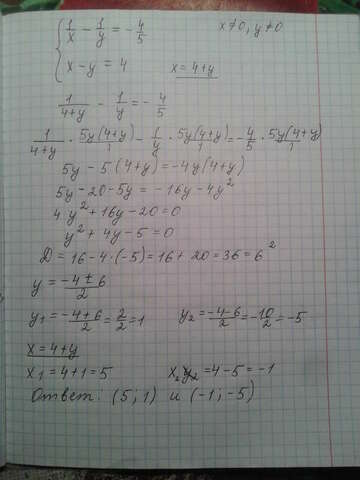 1/x - 1/y = -4/5 x≠0, y≠0
x - y = 4 x = 4+y
1/(4+y) - 1/y = -4/5
1/(4+y) · 5y(4+y)/1 - 1/y · 5y(4+y)/1 = -4/5 · 5y(4+y)/1
5y - 5·(4+y) = -4y(4+y)
5y - 20 - 5y = -16y - 4y²
4y² + 16y - 20 = 0
y² + 4y - 5 = 0
D = 16 - 4·(-5) = 16 + 20 = 36 = 6²
y = (-4 ± 6)/2
y₁ = (-4+6)/2 = 2/2 = 1 y₂ = (-4-6)/2 = -10/2 = -5
x = 4+y
x1 = 4+1 = 5 x₂ = 4-5 = -1
Ответ: (5; 1) и (-1; -5)